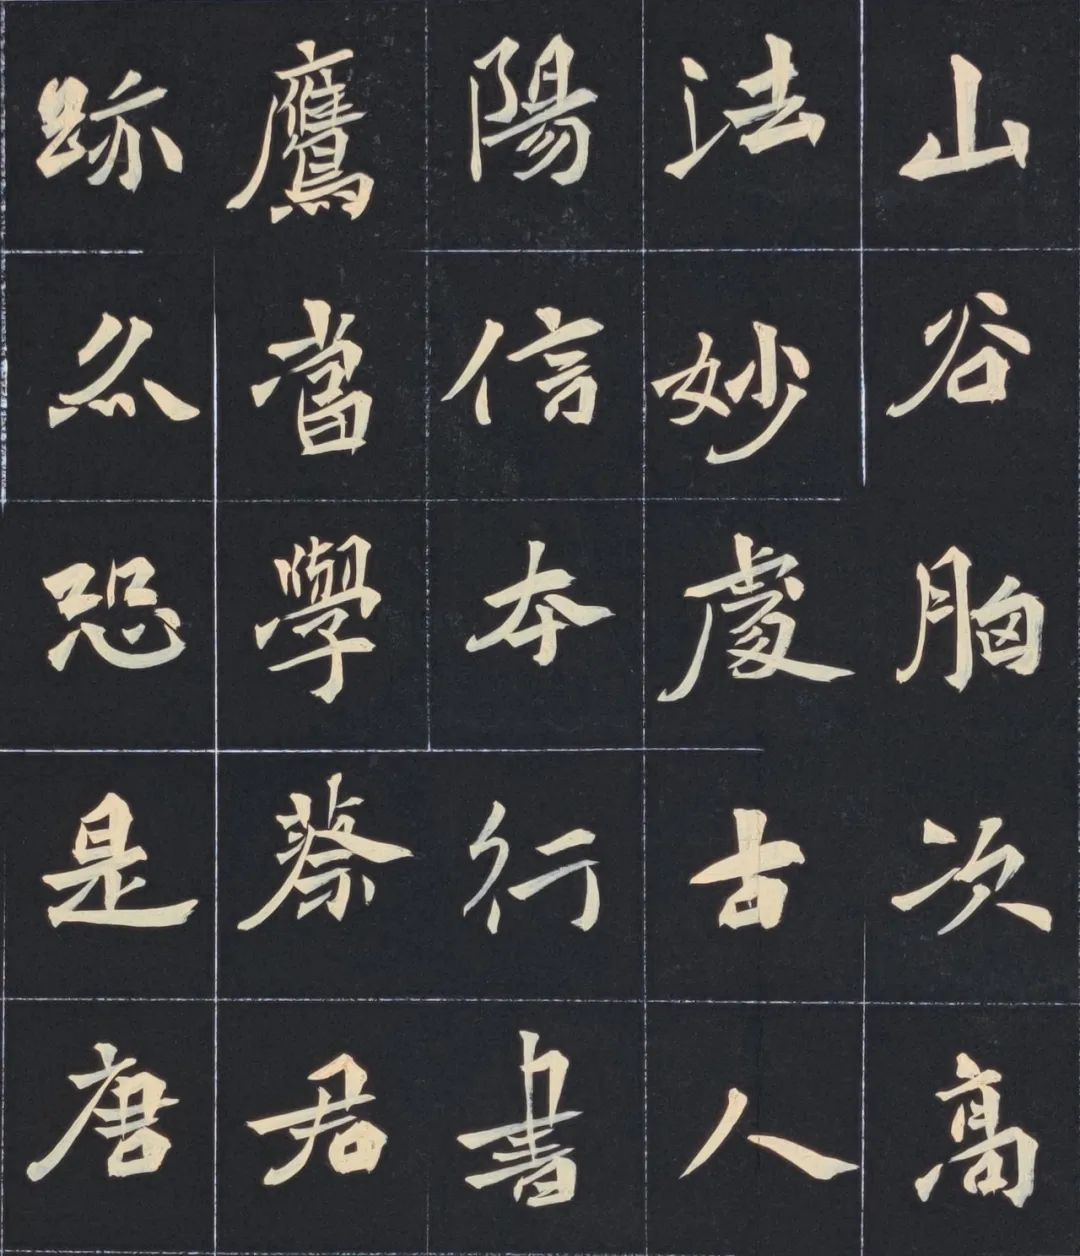 山谷胸次高
法妙處古人
陽信本行書
鷹當學蔡君
跡然恐是唐